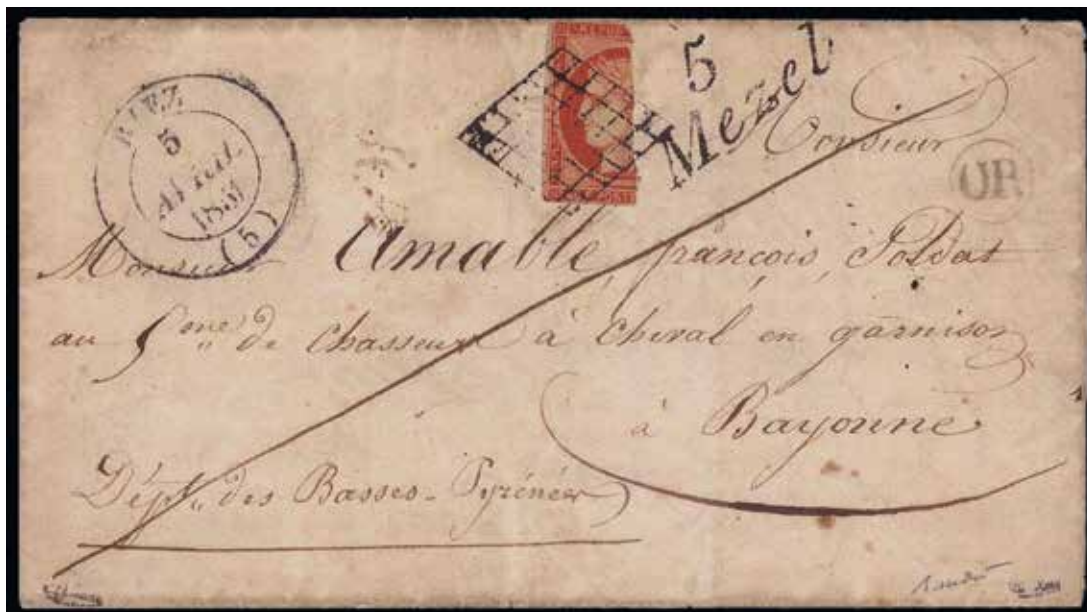 RIEZ
5
AVRIL
1851
(5)
5
Mezel
OR
Monsieur
Monsieur Amable, françois, Soldat
au 5me de Chasseur à Cheval en garnison
à Bayonne
Dépt. des Basses-Pyrénées